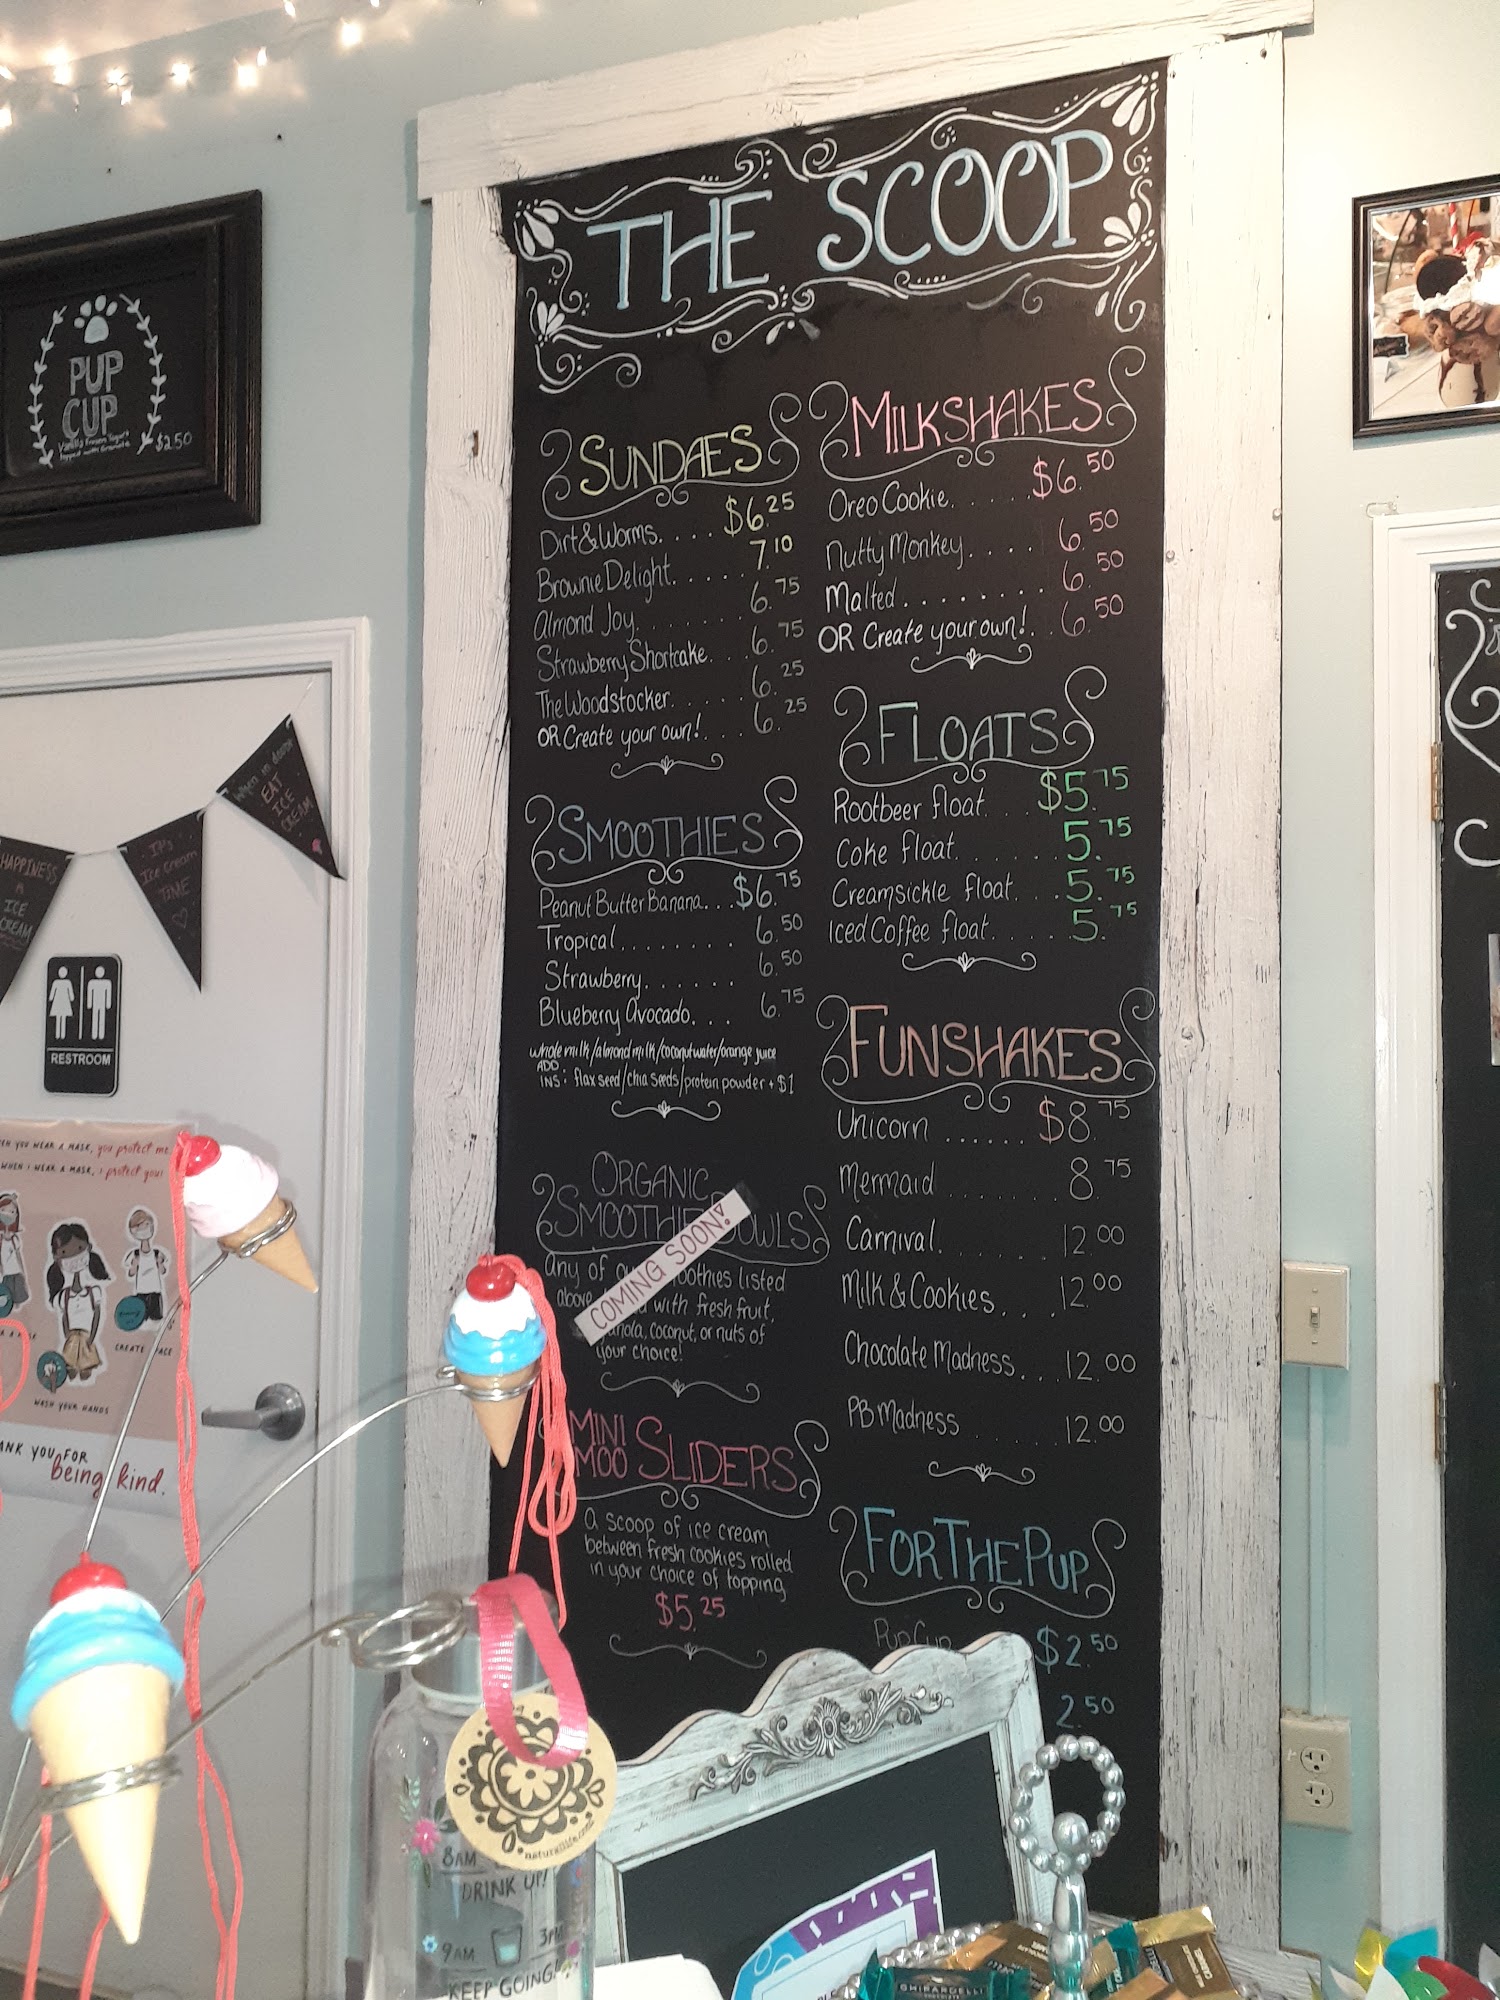 THE SCOOP
PUP
CUP
Vanilla Frozen Yogurt
topped with Granola
$2.50
SUNDAES
Dirt & Worms.... $6.25
Brownie Delight..... 7.10
Almond Joy....... 6.75
Strawberry Shortcake... 6.75
The Woodstocker.... 6.25
OR Create your own!... 6.25
SMOOTHIES
Peanut Butter Banana... $6.75
Tropical........ 6.50
Strawberry...... 6.50
Blueberry Avocado... 6.75
whole milk/almond milk/coconut water/orange juice
ADD
INS: flax seed/chia seeds/protein powder + $1
ORGANIC
SMOOTHIE BOWLS
COMING SOON!
any of our smoothies listed
above with fresh fruit,
granola, coconut, or nuts of
your choice!
MINI
MOO SLIDERS
a scoop of ice cream
between fresh cookies rolled
in your choice of topping
$5.25
MILKSHAKES
Oreo Cookie..... $6.50
Nutty Monkey.... 6.50
Malted........ 6.50
OR Create your own!.. 6.50
FLOATS
Rootbeer float... $5.75
Coke float...... 5.75
Creamsickle float... 5.75
Iced Coffee float..... 5.75
FUNSHAKES
Unicorn...... $8.75
Mermaid....... 8.75
Carnival....... 12.00
Milk & Cookies.... 12.00
Chocolate Madness... 12.00
PB Madness..... 12.00
FOR THE PUP
Pup Cup $2.50
2.50
When in doubt
EAT
ICE
CREAM
It's
Ice Cream
TIME
HAPPINESS
ICE
CREAM
RESTROOM
WHEN YOU WEAR A MASK, you protect me
WHEN I WEAR A MASK, I protect you!
WASH YOUR HANDS
CREATE SPACE
THANK YOU FOR
being kind.
naturallife.com
8AM
DRINK UP!
9AM
3PM
KEEP GOING!
GHIRARDELLI